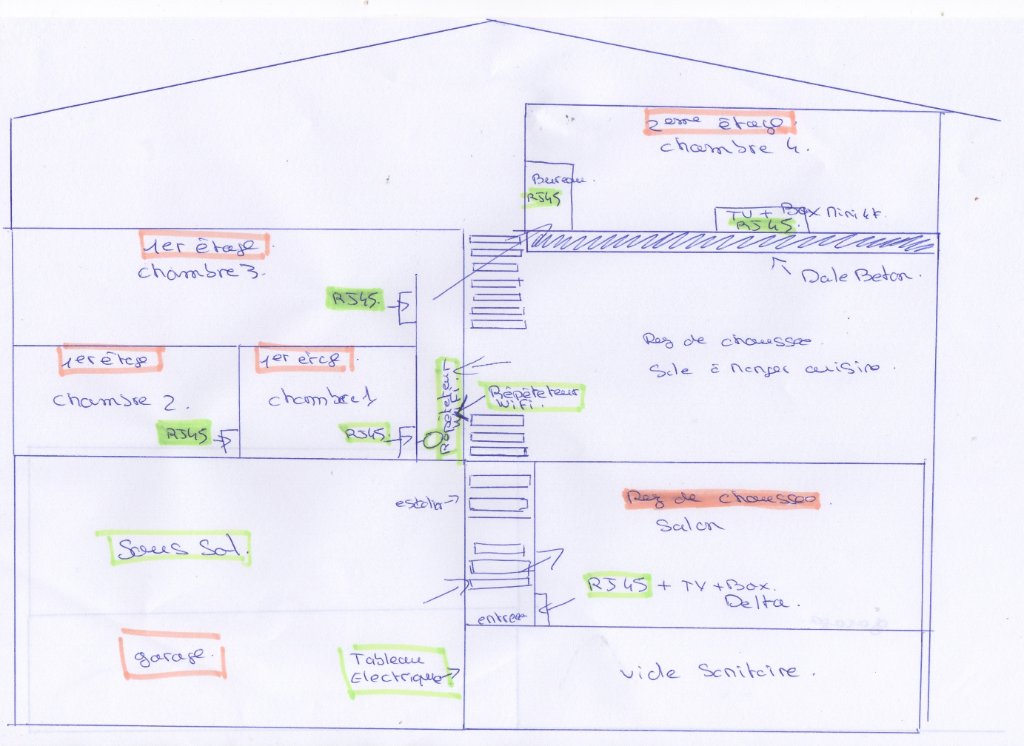 2eme étage
chambre 4.
Bureau.
RJ45
TV + Box Mini 4K
RJ45
1er étage
chambre 3.
RJ45
Dale Beton.
Rez de chaussee
Sale à manger cuisine.
1er étage
chambre 2.
RJ45
1er étage
chambre 1
RJ45
Répéteteur
WiFi.
Répéteteur
WiFi.
escalier
Rez de chaussee
Salon
Sous Sol.
RJ45 + TV + Box.
Delta.
entree
garage.
Tableau
Electrique
Vide Sanitaire.